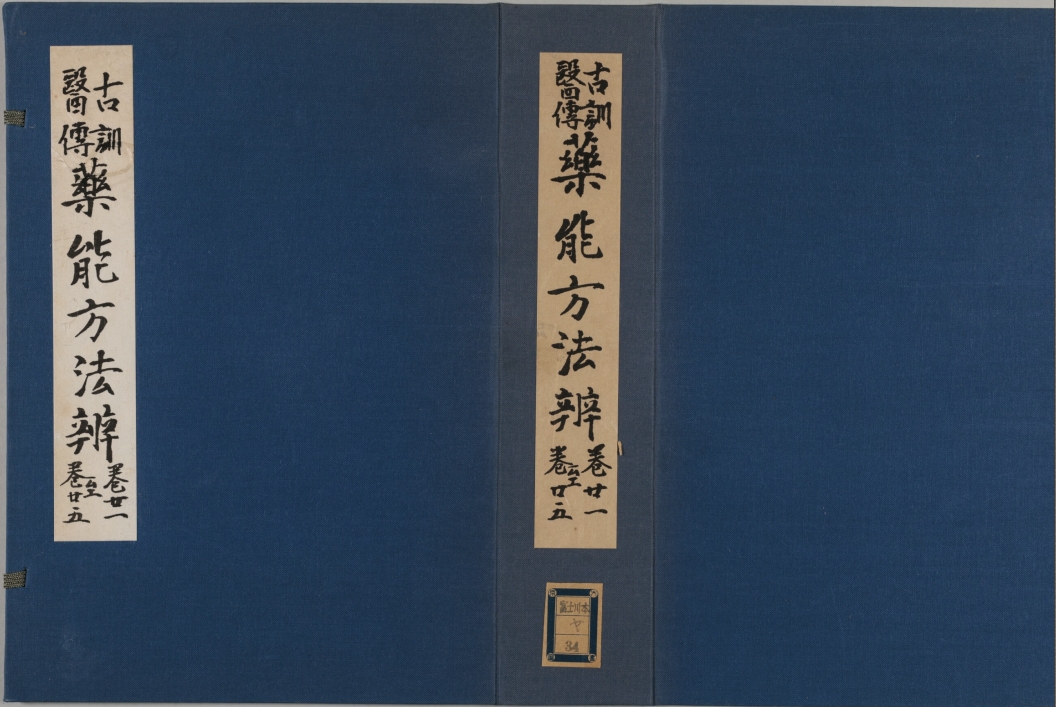 古訓
醫傳
藥能方法辨
卷廿一
至
卷廿五
古訓
醫傳
藥能方法辨
卷廿一
至
卷廿五
富士川本
ヤ
34